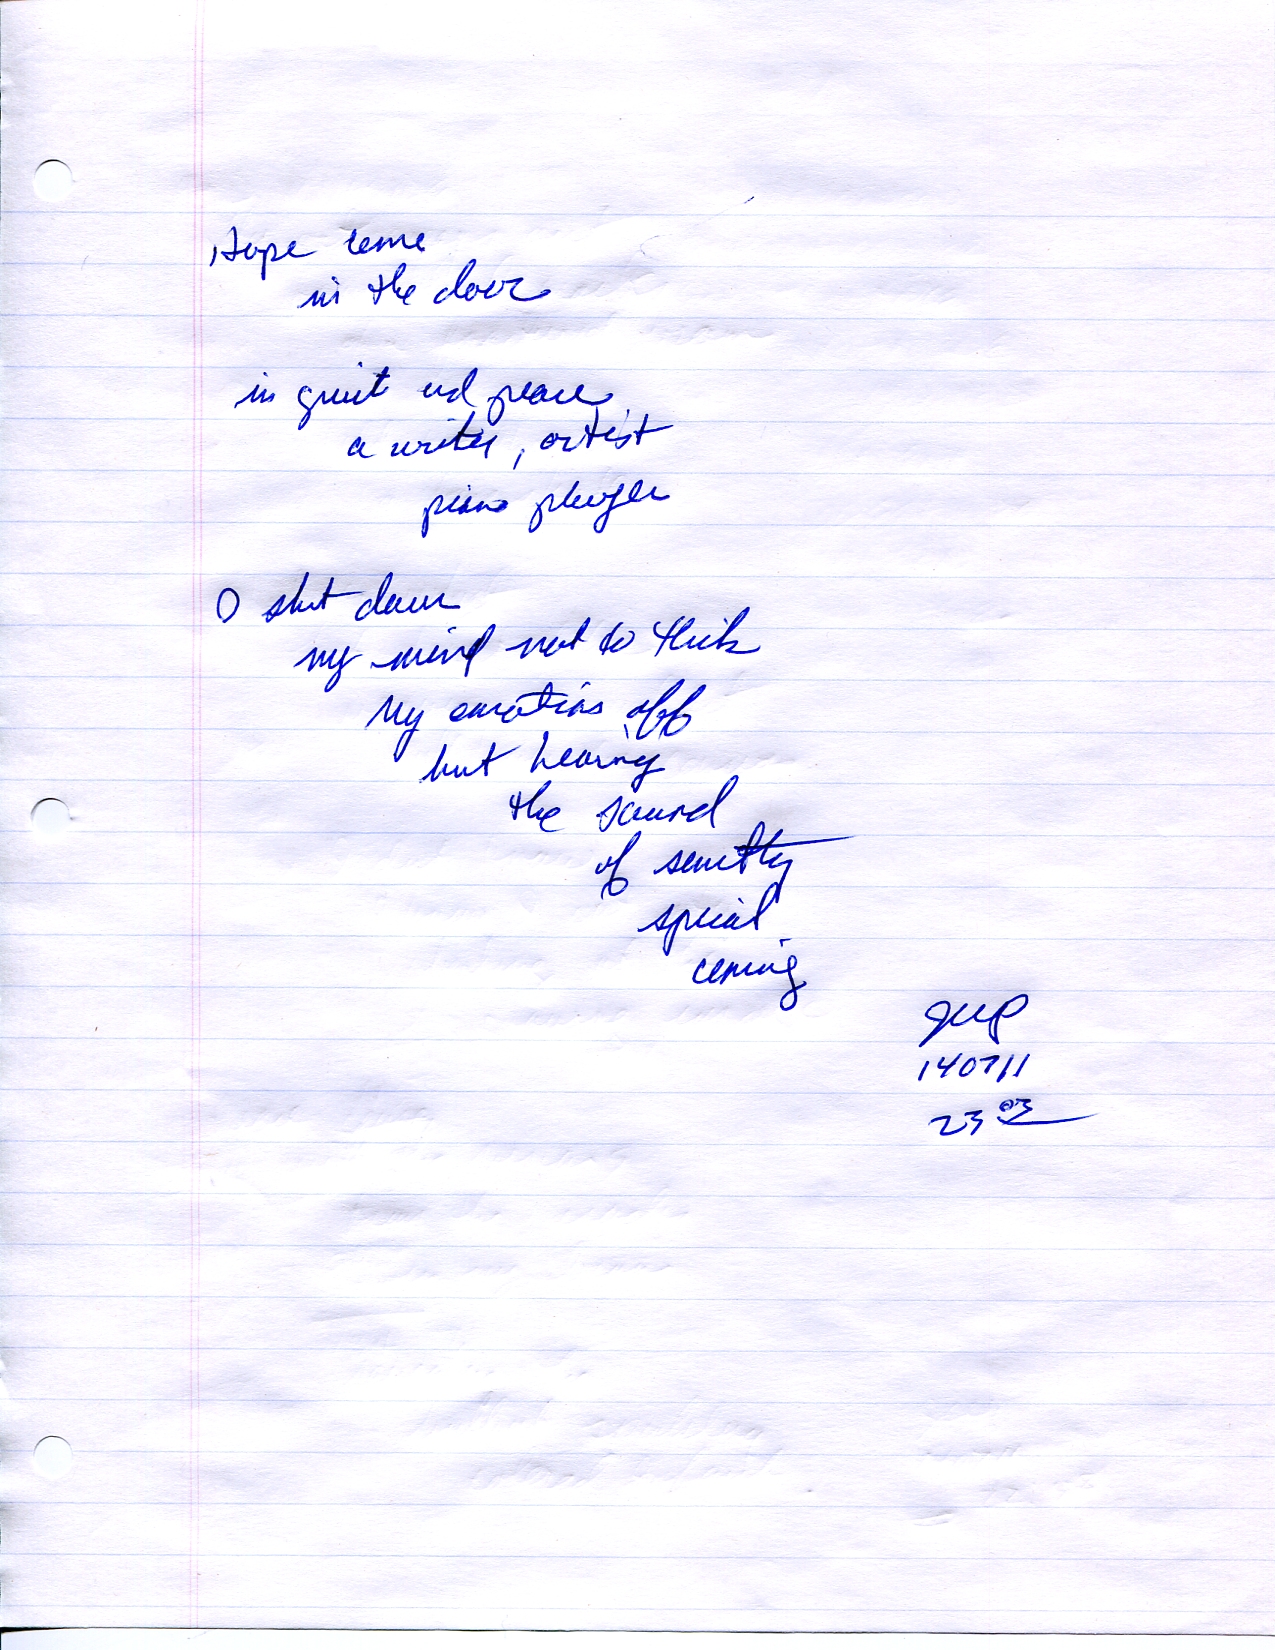 Hope came
in the door
in quiet and peace
a writer, artist
piano player
O shut down
my mind not to think
My emotions off
but hearing
the sound
of
special
coming
140711
23 03